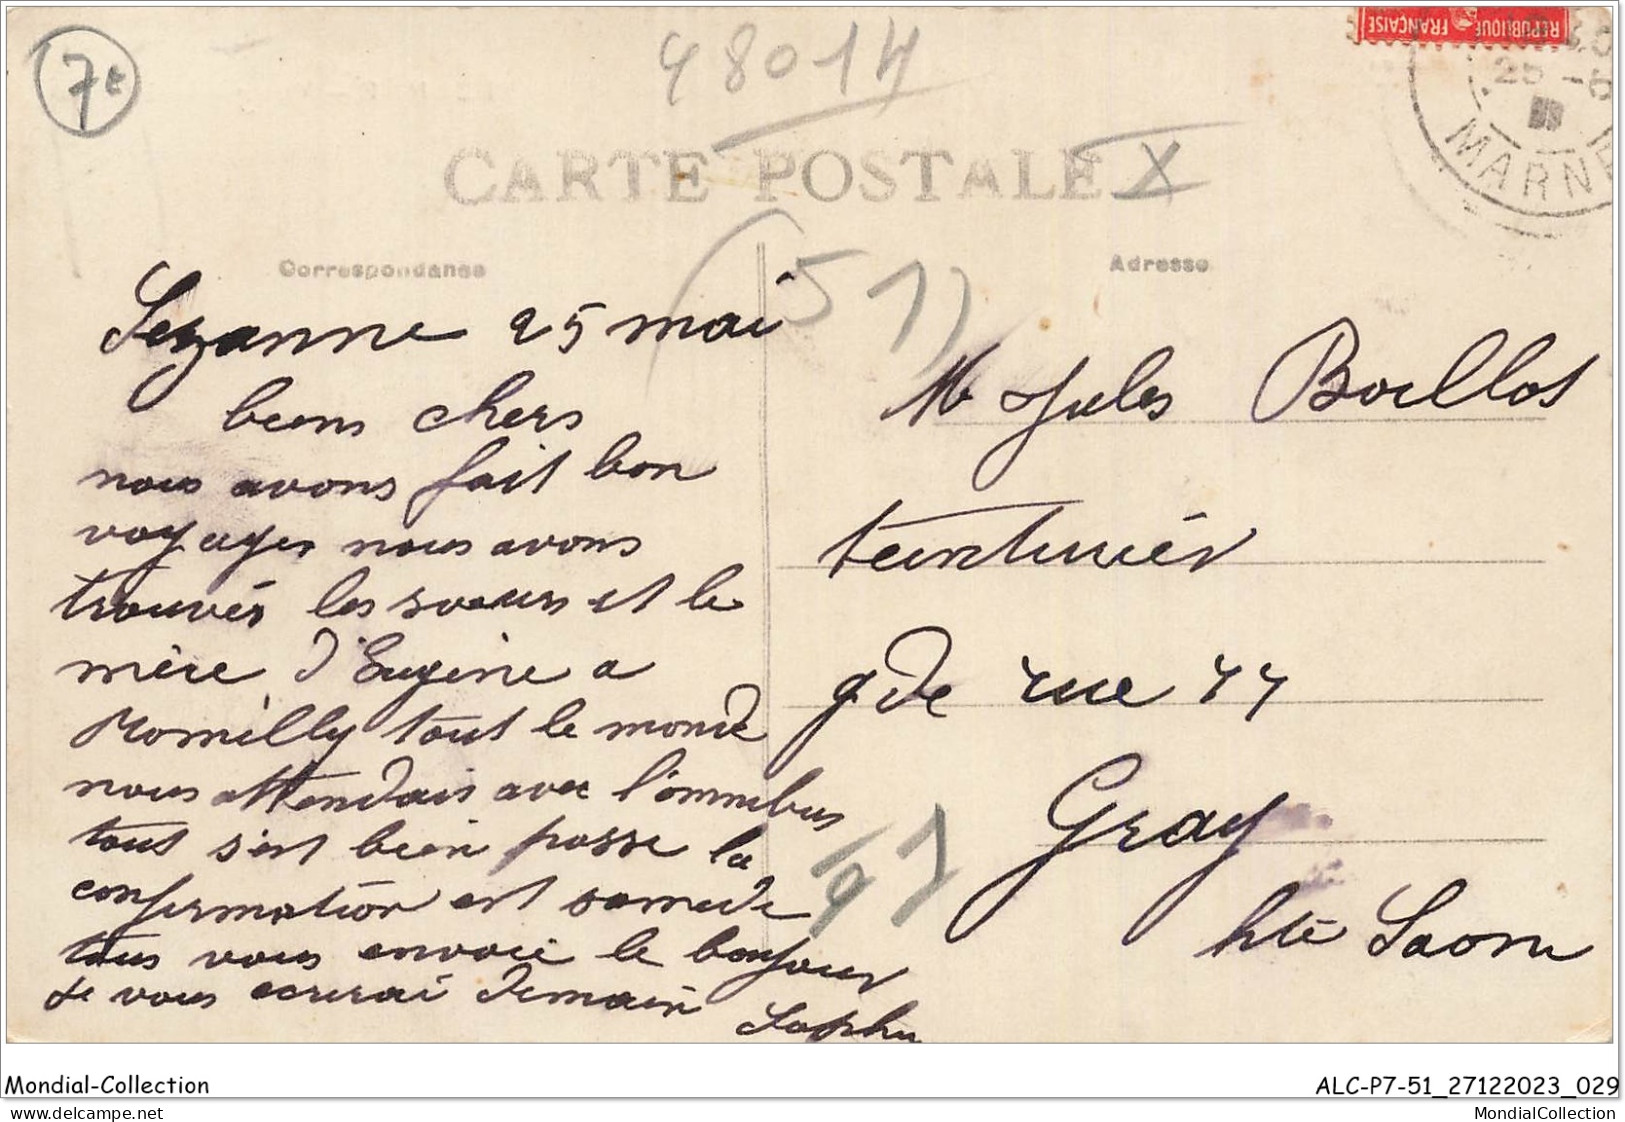 7€
48014
RÉPUBLIQUE FRANÇAISE
25 -5
MARNE
CARTE POSTALE
Correspondance
Adresse
51
Sezanne 25 mai
biens chers
nous avons fait bon
voyages nous avons
trouvés les soeurs et le
mère d'Eugène a
Romilly tout le monde
nous attendais avec l'omnibus
tout s'est bien passe la
confirmation est samedi
tous vous envoie le bonjour
Je vous ecrirai demain Sophie
Mr Jules Boillot
teinturiér
gde rue 44
Gray
hte Saone
Mondial-Collection
ALC-P7-51_27122023_029
MondialCollection